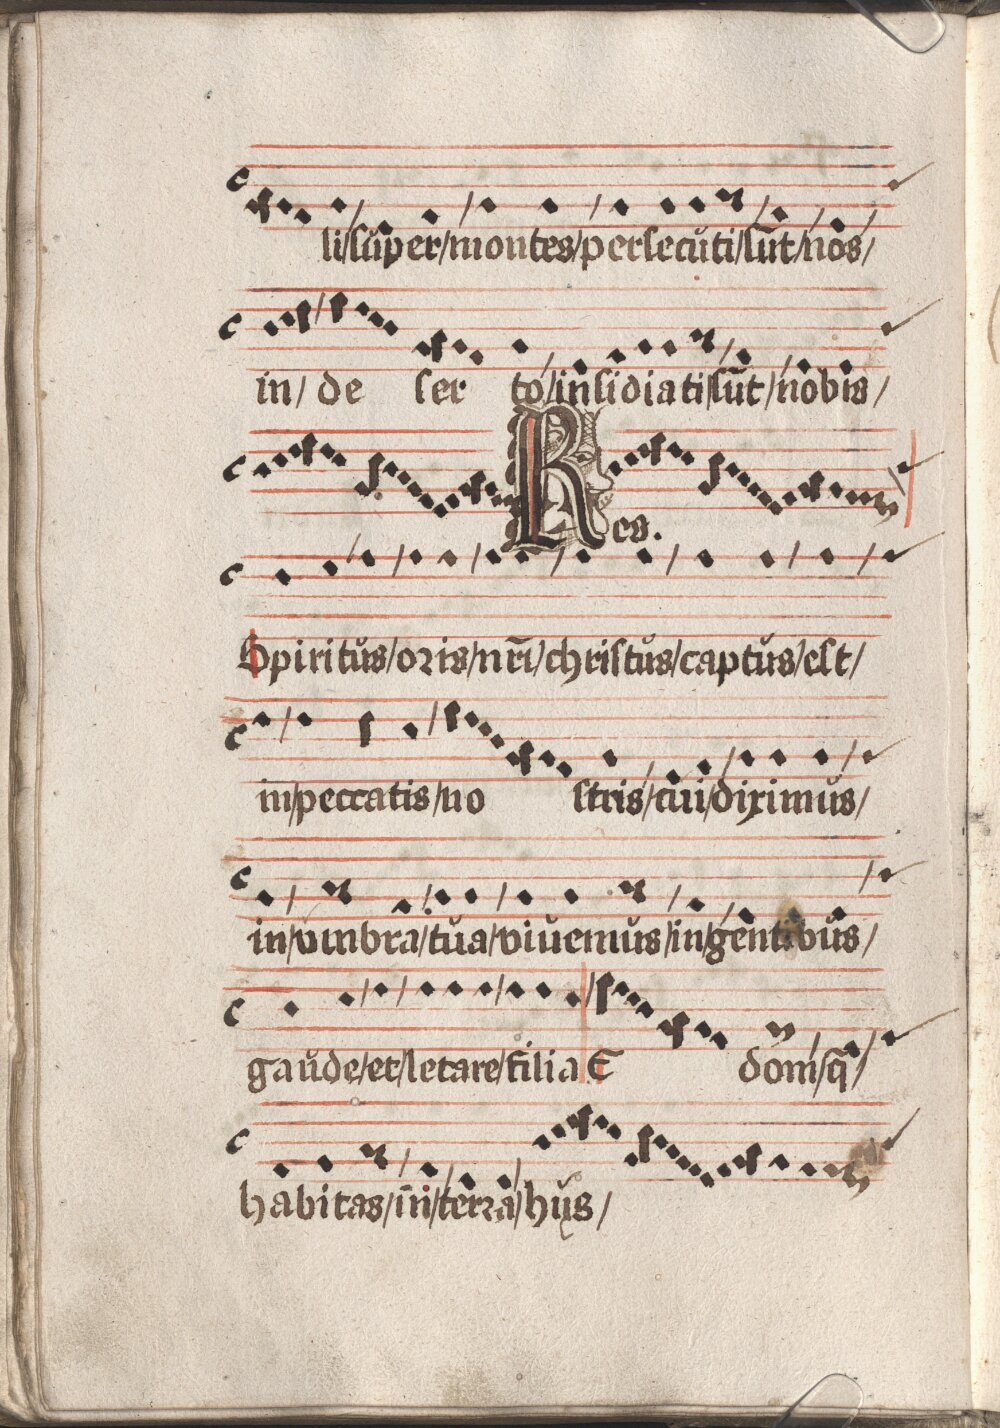 li/sup̱er/montes/persecuti/sūt/nos/
in/ de ser to/insidiati/sūt/nobis/
Res.
Spiritus/oris/nr̄i/christus/captus/est/
in/peccatis/no stris/cui/diximus/
in/vmbra/tua/viuemus/in/gentibus/
gaude/et/letare/filia E dom/q̄/
habitas/in/terra/hus/